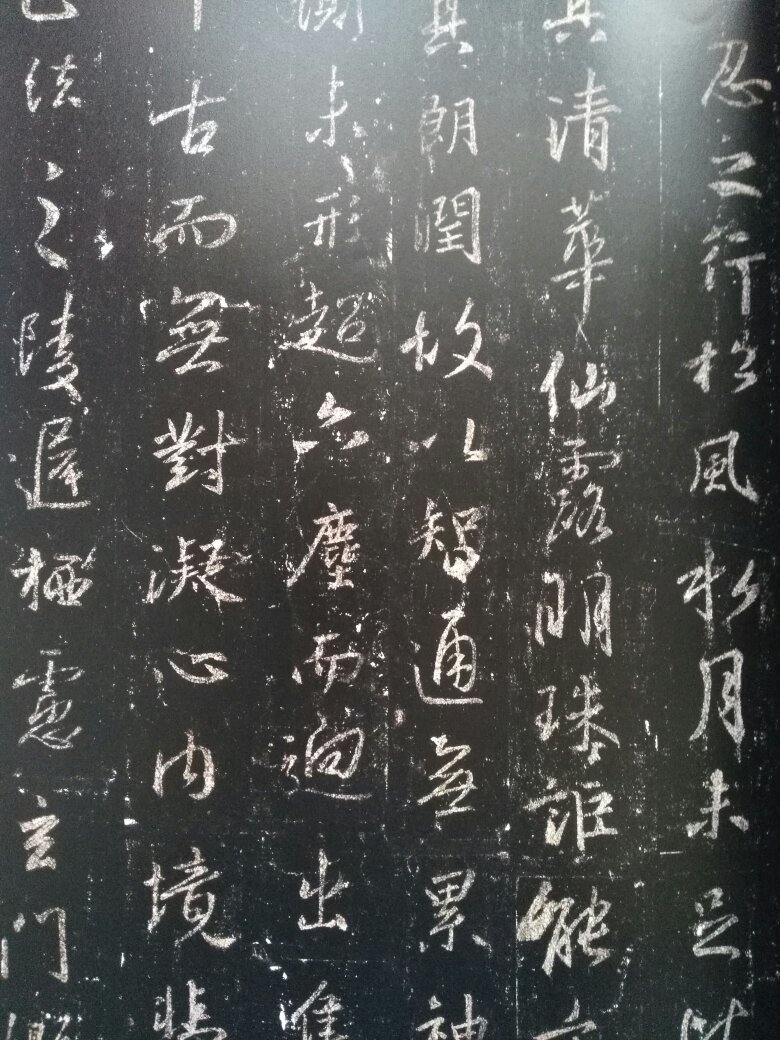 忍之行松風水月未足比
其清華仙露明珠詎能方
其朗潤故以智通無累神
測未形超六塵而迥出隻
千古而無對凝心內境悲
正法之陵遲栖慮玄門慨